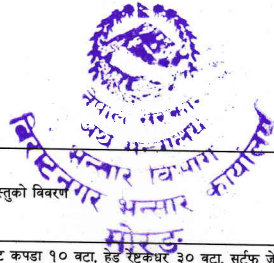 नेपाल सरकार
अर्थ मन्त्रालय
भन्सार विभाग
विराटनगर भन्सार कार्यालय
मोरङ
स्तुको विवरण
ट कपडा १० वटा, हेड रेष्टकभर ३० वटा, सर्टफ जे